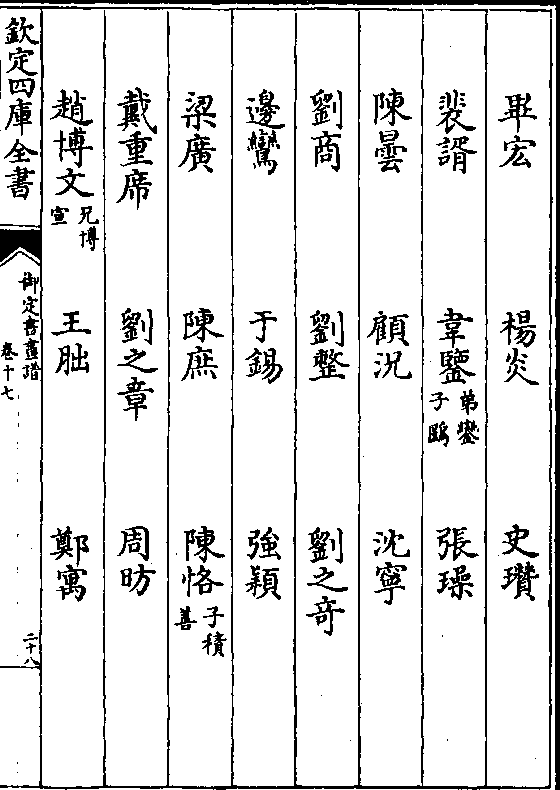 畢宏　楊炎　史瓚
裴諝　韋鑒弟鑾子鷗　張璪
陳曇　顧況　沈寧
劉商　劉整　劉之竒
邊鸞　于錫　強穎
梁廣　陳庶　陳恪子積善
戴重席　劉之章　周昉
趙博文兄博宣　王朏　鄭寓
欽定四庫全書　御定書畫譜卷十七　二十八